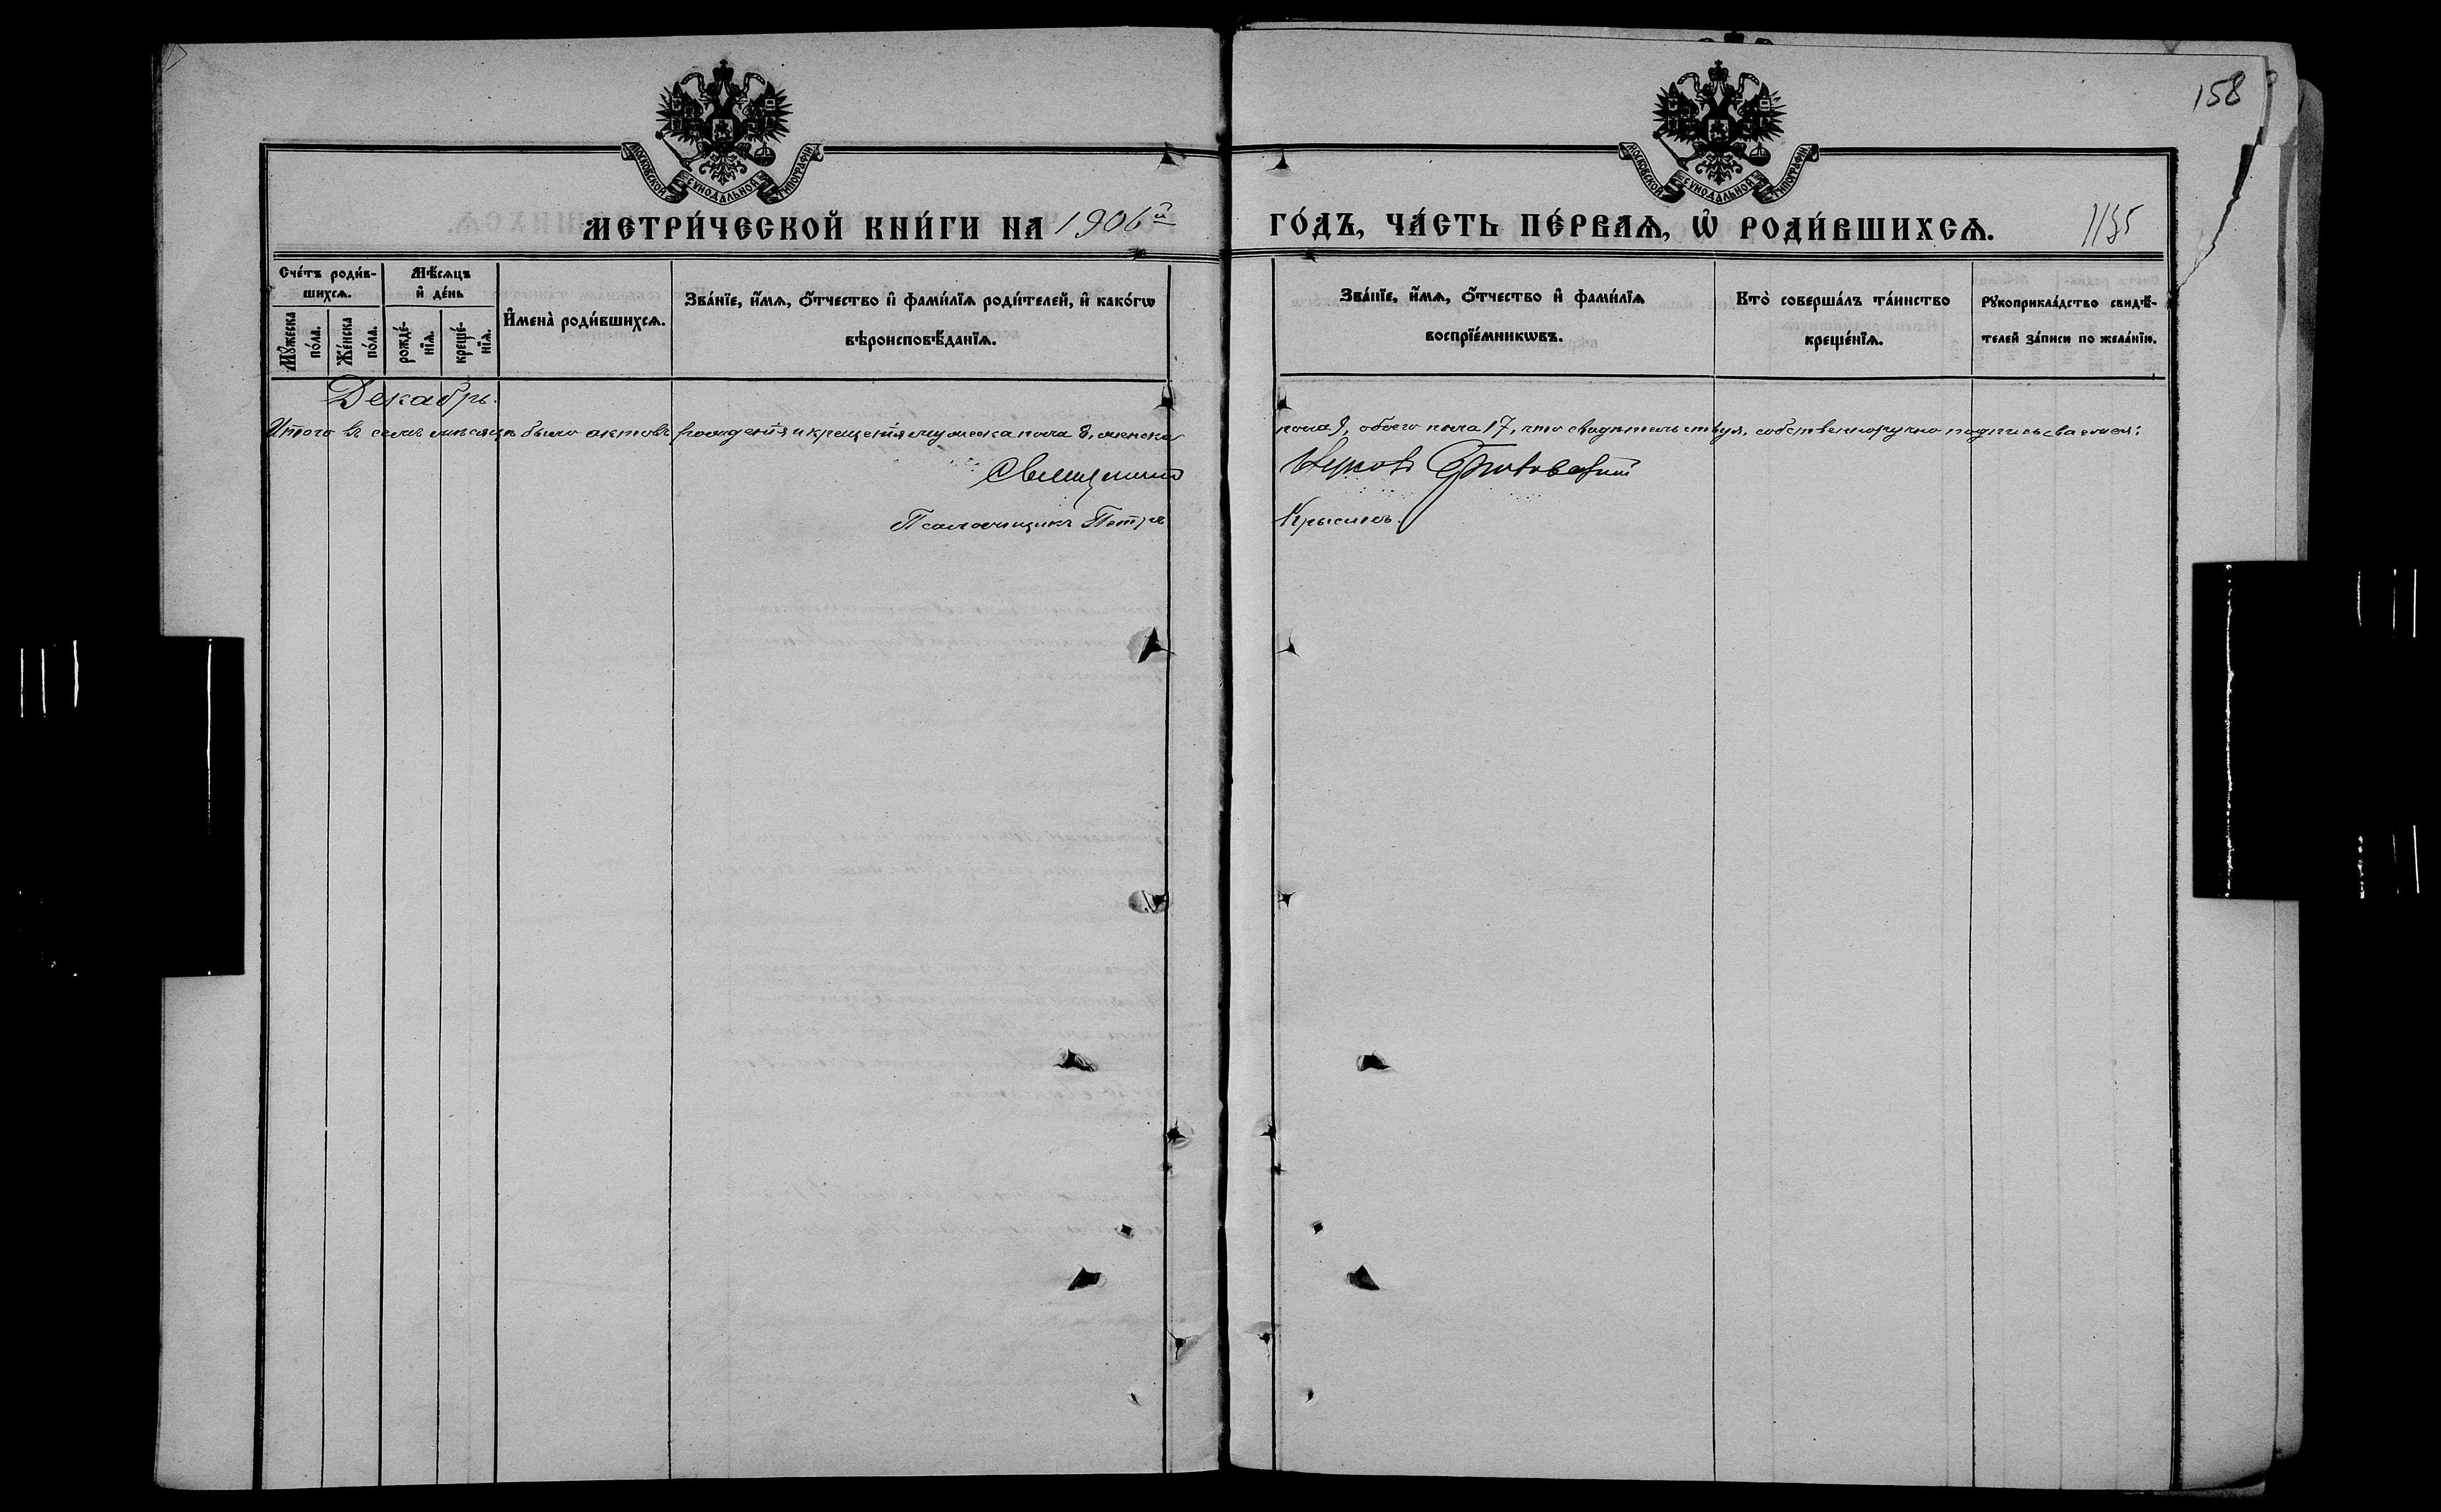 158
МОСКОВСКОЙ СУНОДАЛЬНОЙ ТИПОГРАФІИ
МОСКОВСКОЙ СУНОДАЛЬНОЙ ТИПОГРАФІИ
МЕТРИ́ЧЕСКОЙ КНИ́ГИ НА 1906й ГО́ДЪ, ЧА́СТЬ ПЕ́РВАѦ, Ѽ РОДИ́ВШИХСѦ.
1135
Сче́тъ роди́в-
шихсѧ.
Мѣсѧцъ
и҆ де́нь
Мꙋ́жеска
по́ла.
Же́нска
по́ла.
рожде́-
нїѧ.
креще́-
нїѧ.
И҆мена̀ роди́вшихсѧ.
Зва́нїе, и҆́мѧ, ѻ҆́тчество и҆ фами́лїѧ роди́телей, и҆ како́гѡ
вѣроисповѣ́данїѧ.
Зва́нїе, и҆́мѧ, ѻ҆́тчество и҆ фами́лїѧ
воспрїе́мникѡвъ.
Кто̀ соверша́лъ та́инство
креще́нїѧ.
Рꙋкоприкла́дство свидѣ́-
телей за́писи по жела́нїю.
Декабрь.
Итого въ семъ мѣсяцѣ было актовъ рожденія и крещенія мужеска пола 8, женска пола 9, обоего пола 17, что свидѣтельствуя, собственноручно подписываемся:
Священникъ
Псаломщикъ Петръ